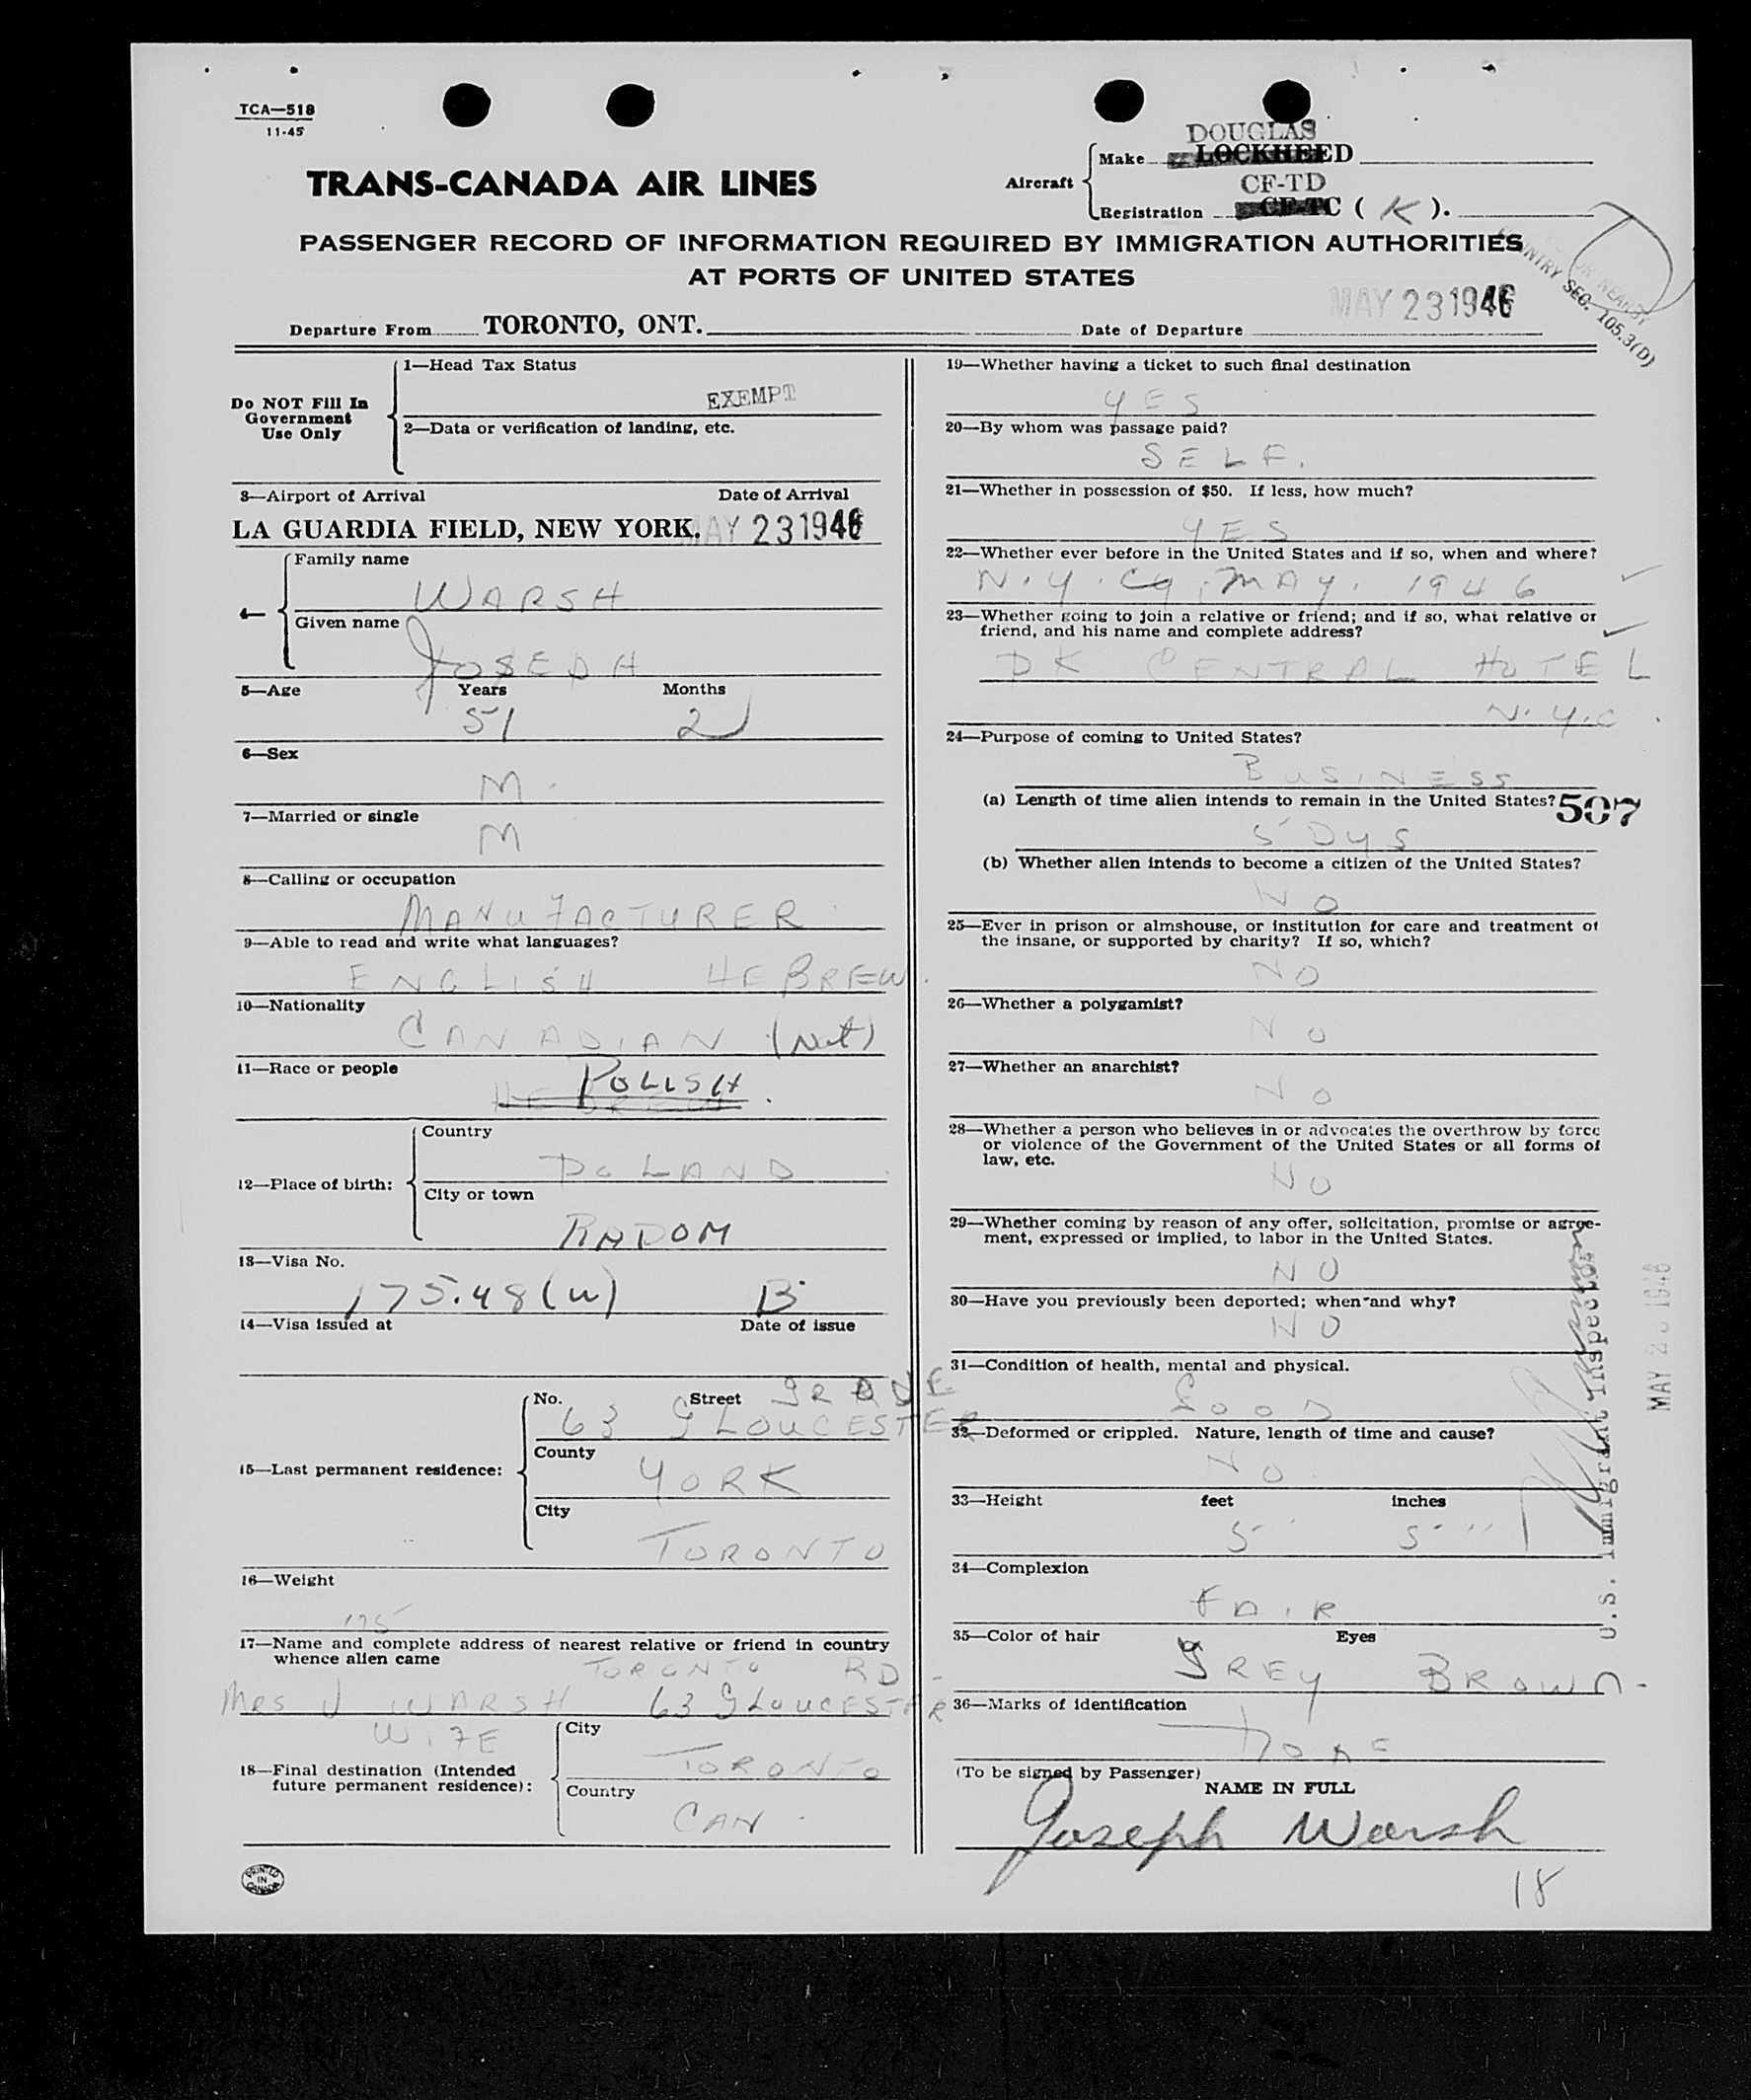 TCA—518
11-45
TRANS-CANADA AIR LINES
Aircraft
DOUGLAS
Make LOCKHEED
CF-TD
Registration CF-TC ( K ).
PASSENGER RECORD OF INFORMATION REQUIRED BY IMMIGRATION AUTHORITIES
AT PORTS OF UNITED STATES
SEC. 105.3(D)
Departure From TORONTO, ONT. Date of Departure MAY 23 1946
Do NOT Fill In
Government
Use Only
1—Head Tax Status
EXEMPT
2—Data or verification of landing, etc.
3—Airport of Arrival Date of Arrival
LA GUARDIA FIELD, NEW YORK. MAY 23 1946
4—
Family name
WARSH
Given name
JOSEPH
5—Age Years Months
51 2
6—Sex
M.
7—Married or single
M
8—Calling or occupation
MANUFACTURER
9—Able to read and write what languages?
ENGLISH HEBREW.
10—Nationality
CANADIAN (Nat)
11—Race or people
POLISH
HEBREW.
12—Place of birth:
Country
POLAND
City or town
RADOM
13—Visa No.
175.48 (W) B
14—Visa issued at Date of issue
15—Last permanent residence:
No. Street GROVE
63 GLOUCESTER
County
YORK
City
TORONTO
16—Weight
175
17—Name and complete address of nearest relative or friend in country
whence alien came
TORONTO RD
MRS J WARSH 63 GLOUCESTER
WIFE
18—Final destination (Intended
future permanent residence):
City
TORONTO
Country
CAN.
PRINTED
IN
CANADA
19—Whether having a ticket to such final destination
YES
20—By whom was passage paid?
SELF.
21—Whether in possession of $50. If less, how much?
YES
22—Whether ever before in the United States and if so, when and where?
N.Y. Cy, MAY. 1946
23—Whether going to join a relative or friend; and if so, what relative or
friend, and his name and complete address?
PK CENTRAL HOTEL
N.Y.C.
24—Purpose of coming to United States?
BUSINESS
(a) Length of time alien intends to remain in the United States? 507
5 DYS
(b) Whether alien intends to become a citizen of the United States?
NO
25—Ever in prison or almshouse, or institution for care and treatment of
the insane, or supported by charity? If so, which?
NO
26—Whether a polygamist?
NO
27—Whether an anarchist?
NO
28—Whether a person who believes in or advocates the overthrow by force
or violence of the Government of the United States or all forms of
law, etc.
NO
29—Whether coming by reason of any offer, solicitation, promise or agree-
ment, expressed or implied, to labor in the United States.
NO
30—Have you previously been deported; when and why?
NO
31—Condition of health, mental and physical.
GOOD
32—Deformed or crippled. Nature, length of time and cause?
NO
33—Height feet inches
5' 5"
34—Complexion
FAIR
35—Color of hair Eyes
GREY BROWN.
36—Marks of identification
none
(To be signed by Passenger)
NAME IN FULL
Joseph Warsh
18
U.S. Immigrant Inspector
MAY 23 1946